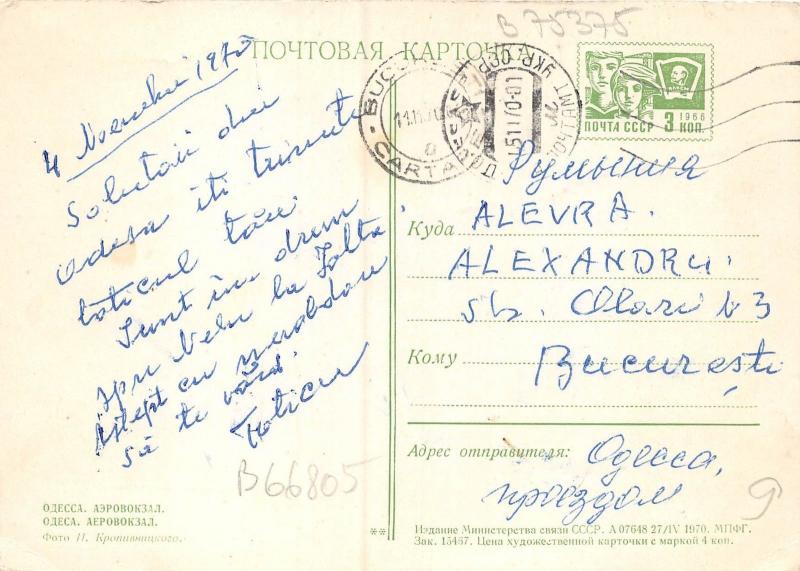 B 75375
ПОЧТОВАЯ КАРТОЧКА
ПОЧТА СССР
1966
3 КОП.
4 Noembrie 1970
Salutări din
Odesa îți trimite
tăticul tău.
Sunt în drum
spre la Ialta.
Aștept cu nerăbdare
să te văd.
Tăticu
Румыния
Куда ALEVRA.
ALEXANDRU.
str. Olari 3
Кому București
Адрес отправителя: Одесса,
проездом
B66805
9
ОДЕССА. АЭРОВОКЗАЛ.
ОДЕСА. АЕРОВОКЗАЛ.
Фото И. Кропивницкого.
**
Издание Министерства связи СССР. А 07648 27/IV 1970. МПФГ.
Зак. 15467. Цена художественной карточки с маркой 4 коп.